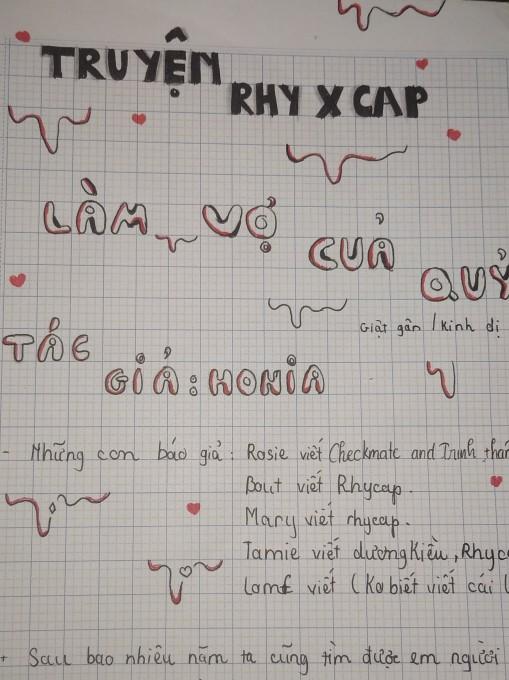 TRUYỆN
RHY X CAP
LÀM_VỢ
CUẢ
QUỶ
Giật gân / Kinh dị
TÁC
GIẢ : HONIA
- Những con báo giả : Rosie viết Checkmate and Trinh thám
Bout viết Rhycap.
Mary viết rhycap.
Jamie viết dươngKiều, Rhyc
Lomf viết (Ko biết viết cái
+ Sau bao nhiêu năm ta cũng tìm được em người